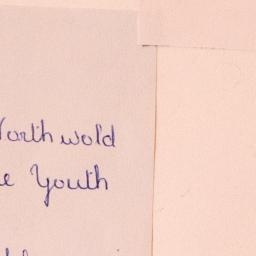 Northwold
e Youth